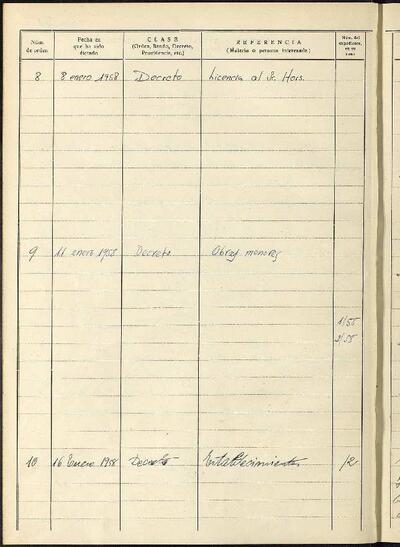 Núm. de orden
Fecha en que ha sido dictado
CLASE
(Orden, Bando, Decreto, Providencia, etc.)
REFERENCIA
(Materia o persona interesada)
Núm. del expediente, en su caso
8 8 enero 1958 Decreto Licencia al Sr.
9 11 enero 1958 Decreto Obras menores
1/58
2/58
10 16 Enero 1958 Decreto Establecimientos 12